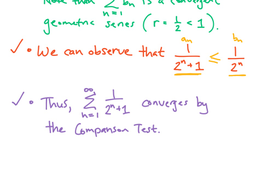 Note that ∞∑n=1 bn is a convergent
geometric series (r = 1/2 < 1).
✓ • We can observe that an 1/(2ⁿ+1) ≤ bn 1/2ⁿ
✓ • Thus, ∞∑n=1 1/(2ⁿ+1) converges by
the Comparison Test.